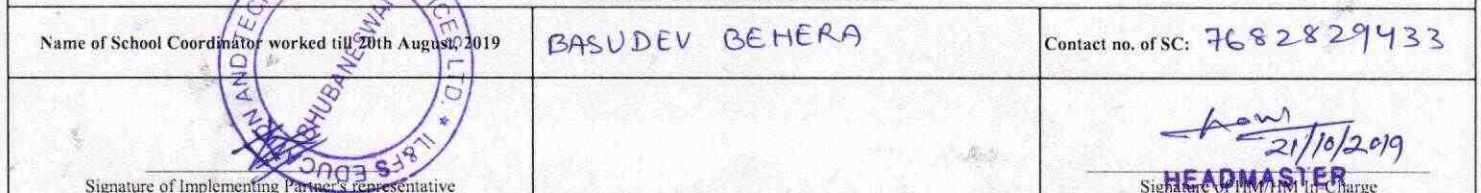 Name of School Coordinator worked till 20th August, 2019
BASUDEV BEHERA
Contact no. of SC: 7682829433
BHUBANESWAR
IL&FS EDUCATION AND TECH
ICES LTD. *
21/10/2019
HEADMASTER
Signature of Implementing Partner's representative
Signature of HM/HM In-Charge